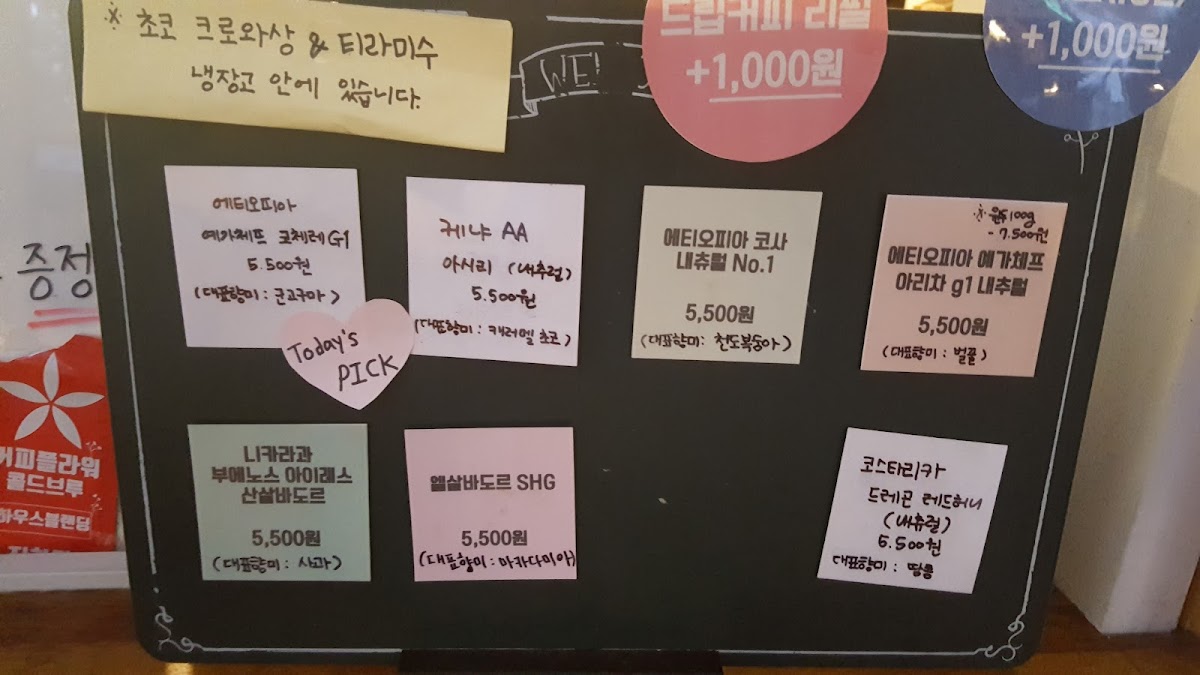 ※ 초코 크로와상 & 티라미수
냉장고 안에 있습니다.
WE!
드립커피 리필
+1,000원
+1,000원
에티오피아
예가체프 코체레 G1
5.500원
(대표향미 : 군고구마)
Today's
PICK
케냐 AA
아시리 (내츄럴)
5.500원
(대표향미 : 캐러멜 초코)
에티오피아 코사
내츄럴 No.1
5,500원
(대표향미 : 천도복숭아)
※ 원두 100g
- 7.500원
에티오피아 예가체프
아리차 g1 내츄럴
5,500원
(대표향미 : 벌꿀)
니카라과
부에노스 아이레스
산살바도르
5,500원
(대표향미 : 사과)
엘살바도르 SHG
5,500원
(대표향미 : 마카다미아)
코스타리카
드래곤 레드허니
(내츄럴)
5.500원
대표향미 : 땅콩
증정
커피플라워
콜드브루
하우스블렌딩